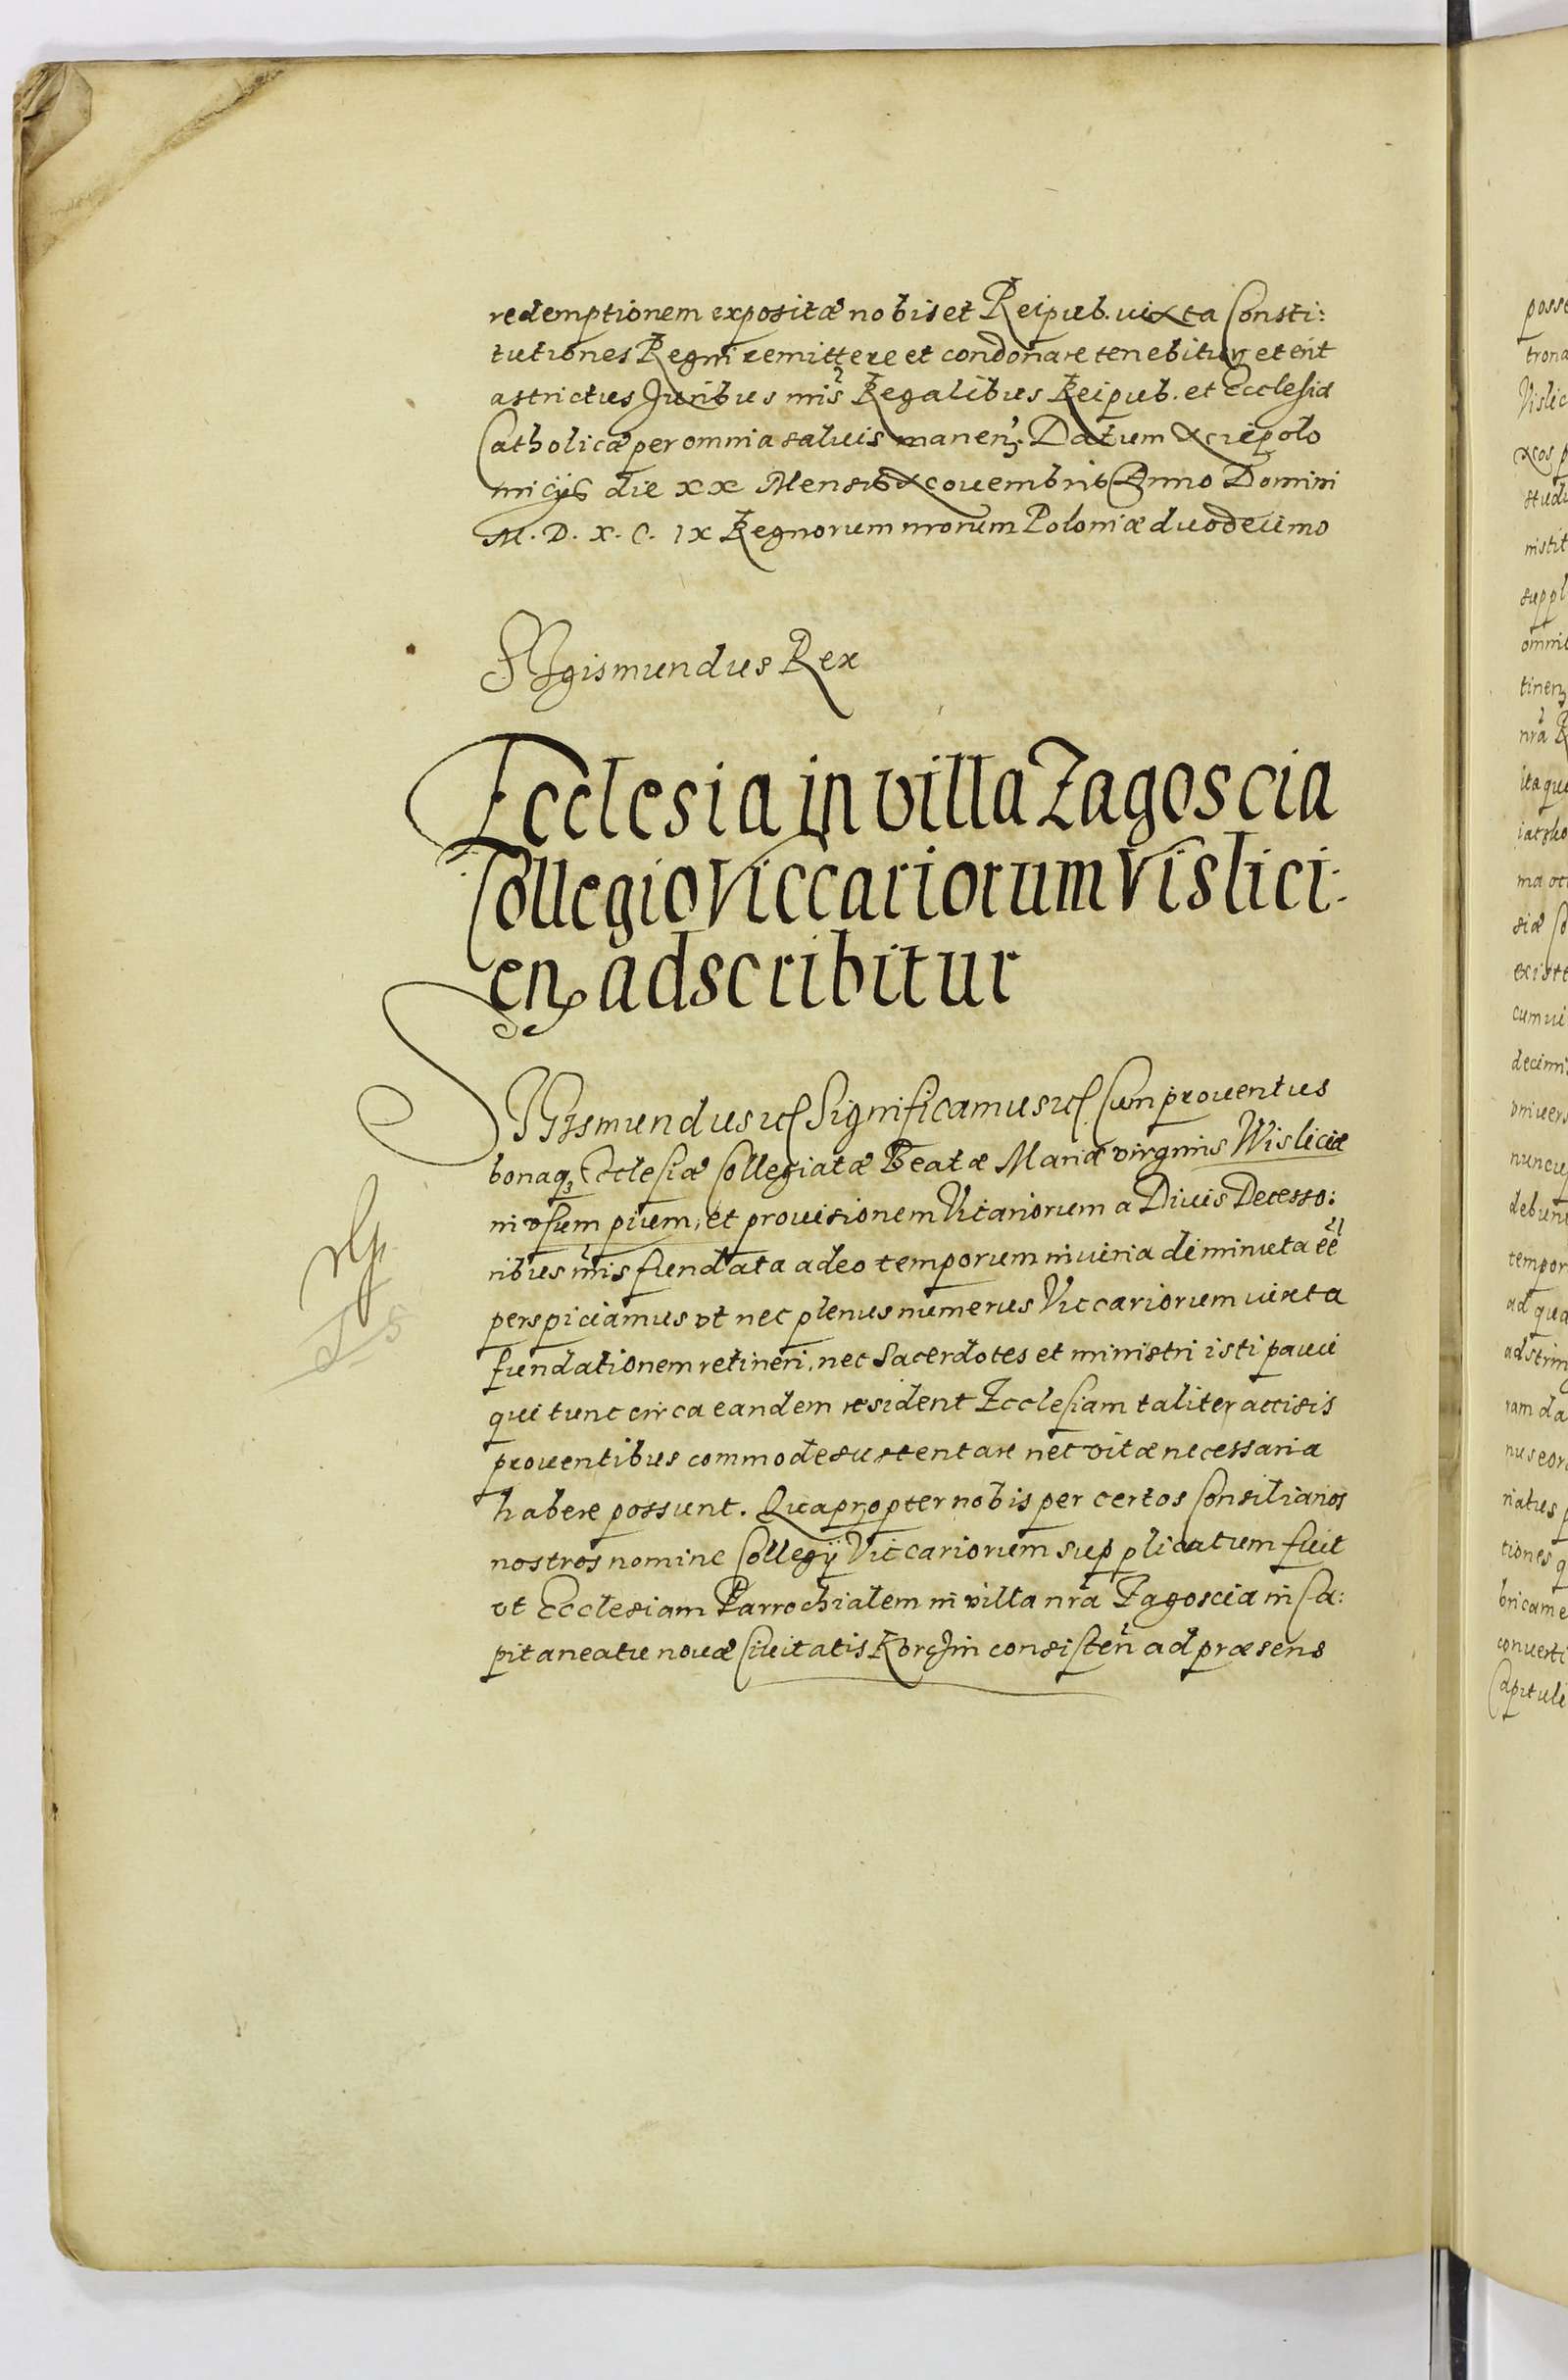 redemptionem expositæ nobis et Reipub. uixta Consti:
tutiones Regni remittere et condonare tenebitur et erit
astrictus Juribus nris Regalibus Reipub. et Ecclesiæ
Catholicæ per omnia saluis manen. Datum Niepolo
micijs die XX Mensis Nouembris Anno Domini
M. D. X. C. IX Regnorum nrorum Poloniæ duodecimo
Sigismundus Rex
Ecclesia in villa Zagoscia
Collegio Viccariorum Vislici:
en adscribitur
Sigismundus etc Significamus etc Cum prouentus
bonaq3 Ecclesiæ Collegiatæ Beatæ Mariæ virginis Wisliciæ
in vsum pium, et prouisionem Vicariorum a Diuis Decesso:
ribus nris fundata adeo temporum iniuria diminuta ee
perspiciamus vt nec plenus numerus Viccariorum iuxta
fundationem retineri, nec Sacerdotes et ministri isti pauci
qui tunc circa eandem resident Ecclesiam taliter accisis
prouentibus commode sustentare nec vitæ necessaria
habere possunt. Quapropter nobis per certos Consiliarios
nostros nomine Collegij Viccariorum supplicatum fuit
vt Ecclesiam Parrochialem in villa nra Zagoscia in Ca:
pitaneatu nouæ Ciuitatis Korczin consisten ad præsens